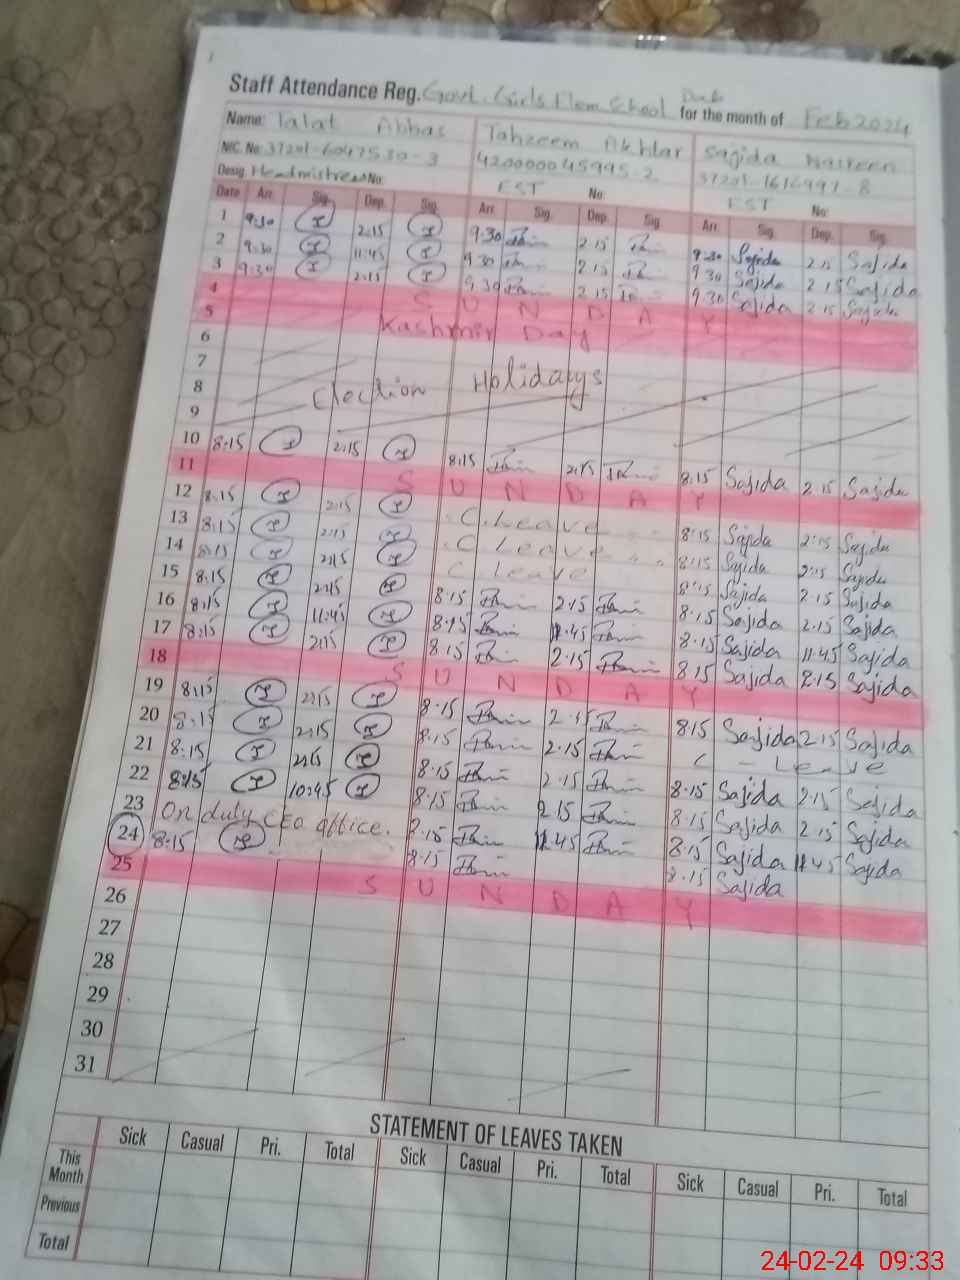 Staff Attendance Reg. Govt. Girls Elem School Dab for the month of Feb 2024
Name: Talat Abbas Tahzeem Akhtar Sajida Nasreen
NIC. No: 37201-6047530-3 420000045995-2 37201-1616997-8
Desig. Headmistress No: EST No: EST No:
Date Arr. Sig. Dep. Sig. Arr. Sig. Dep. Sig. Arr. Sig. Dep. Sig.
1 9:30 2:15 9:30 2.15 9.30 Sajida 2.15 Sajida
2 9:30 11:45 9.30 2.15 9.30 Sajida 2.15 Sajida
3 9:30 2:15 9.30 2.15 9.30 Sajida 2.15 Sajida
4 S U N D A Y
5 Kashmir Day
6
7
8 Election Holidays
9
10 8:15 2:15 8:15 2:15 8:15 Sajida 2.15 Sajida
11 S U N D A Y
12 8:15 2:15 C. Leave 8:15 Sajida 2:15 Sajida
13 8:15 2:15 C Leave 8:15 Sajida 2:15 Sajida
14 8:15 2:15 C Leave 8:15 Sajida 2.15 Sajida
15 8:15 2:15 8:15 2:15 8:15 Sajida 2.15 Sajida
16 8:15 11:45 8:15 11.45 8.15 Sajida 11.45 Sajida
17 8:15 2:15 8.15 2.15 8.15 Sajida 2.15 Sajida
18 S U N D A Y
19 8:15 2:15 8.15 2.15 8.15 Sajida 2.15 Sajida
20 8:15 2:15 8.15 2.15 C - Leave
21 8:15 2:15 8.15 2.15 8.15 Sajida 2.15 Sajida
22 8:15 10:45 8:15 2.15 8.15 Sajida 2.15 Sajida
23 On duty CEO office. 8.15 11.45 8.15 Sajida 11.45 Sajida
24 8:15 8.15 8.15 Sajida
25 S U N D A Y
26
27
28
29
30
31
STATEMENT OF LEAVES TAKEN
Sick Casual Pri. Total Sick Casual Pri. Total Sick Casual Pri. Total
This Month
Previous
Total
24-02-24 09:33